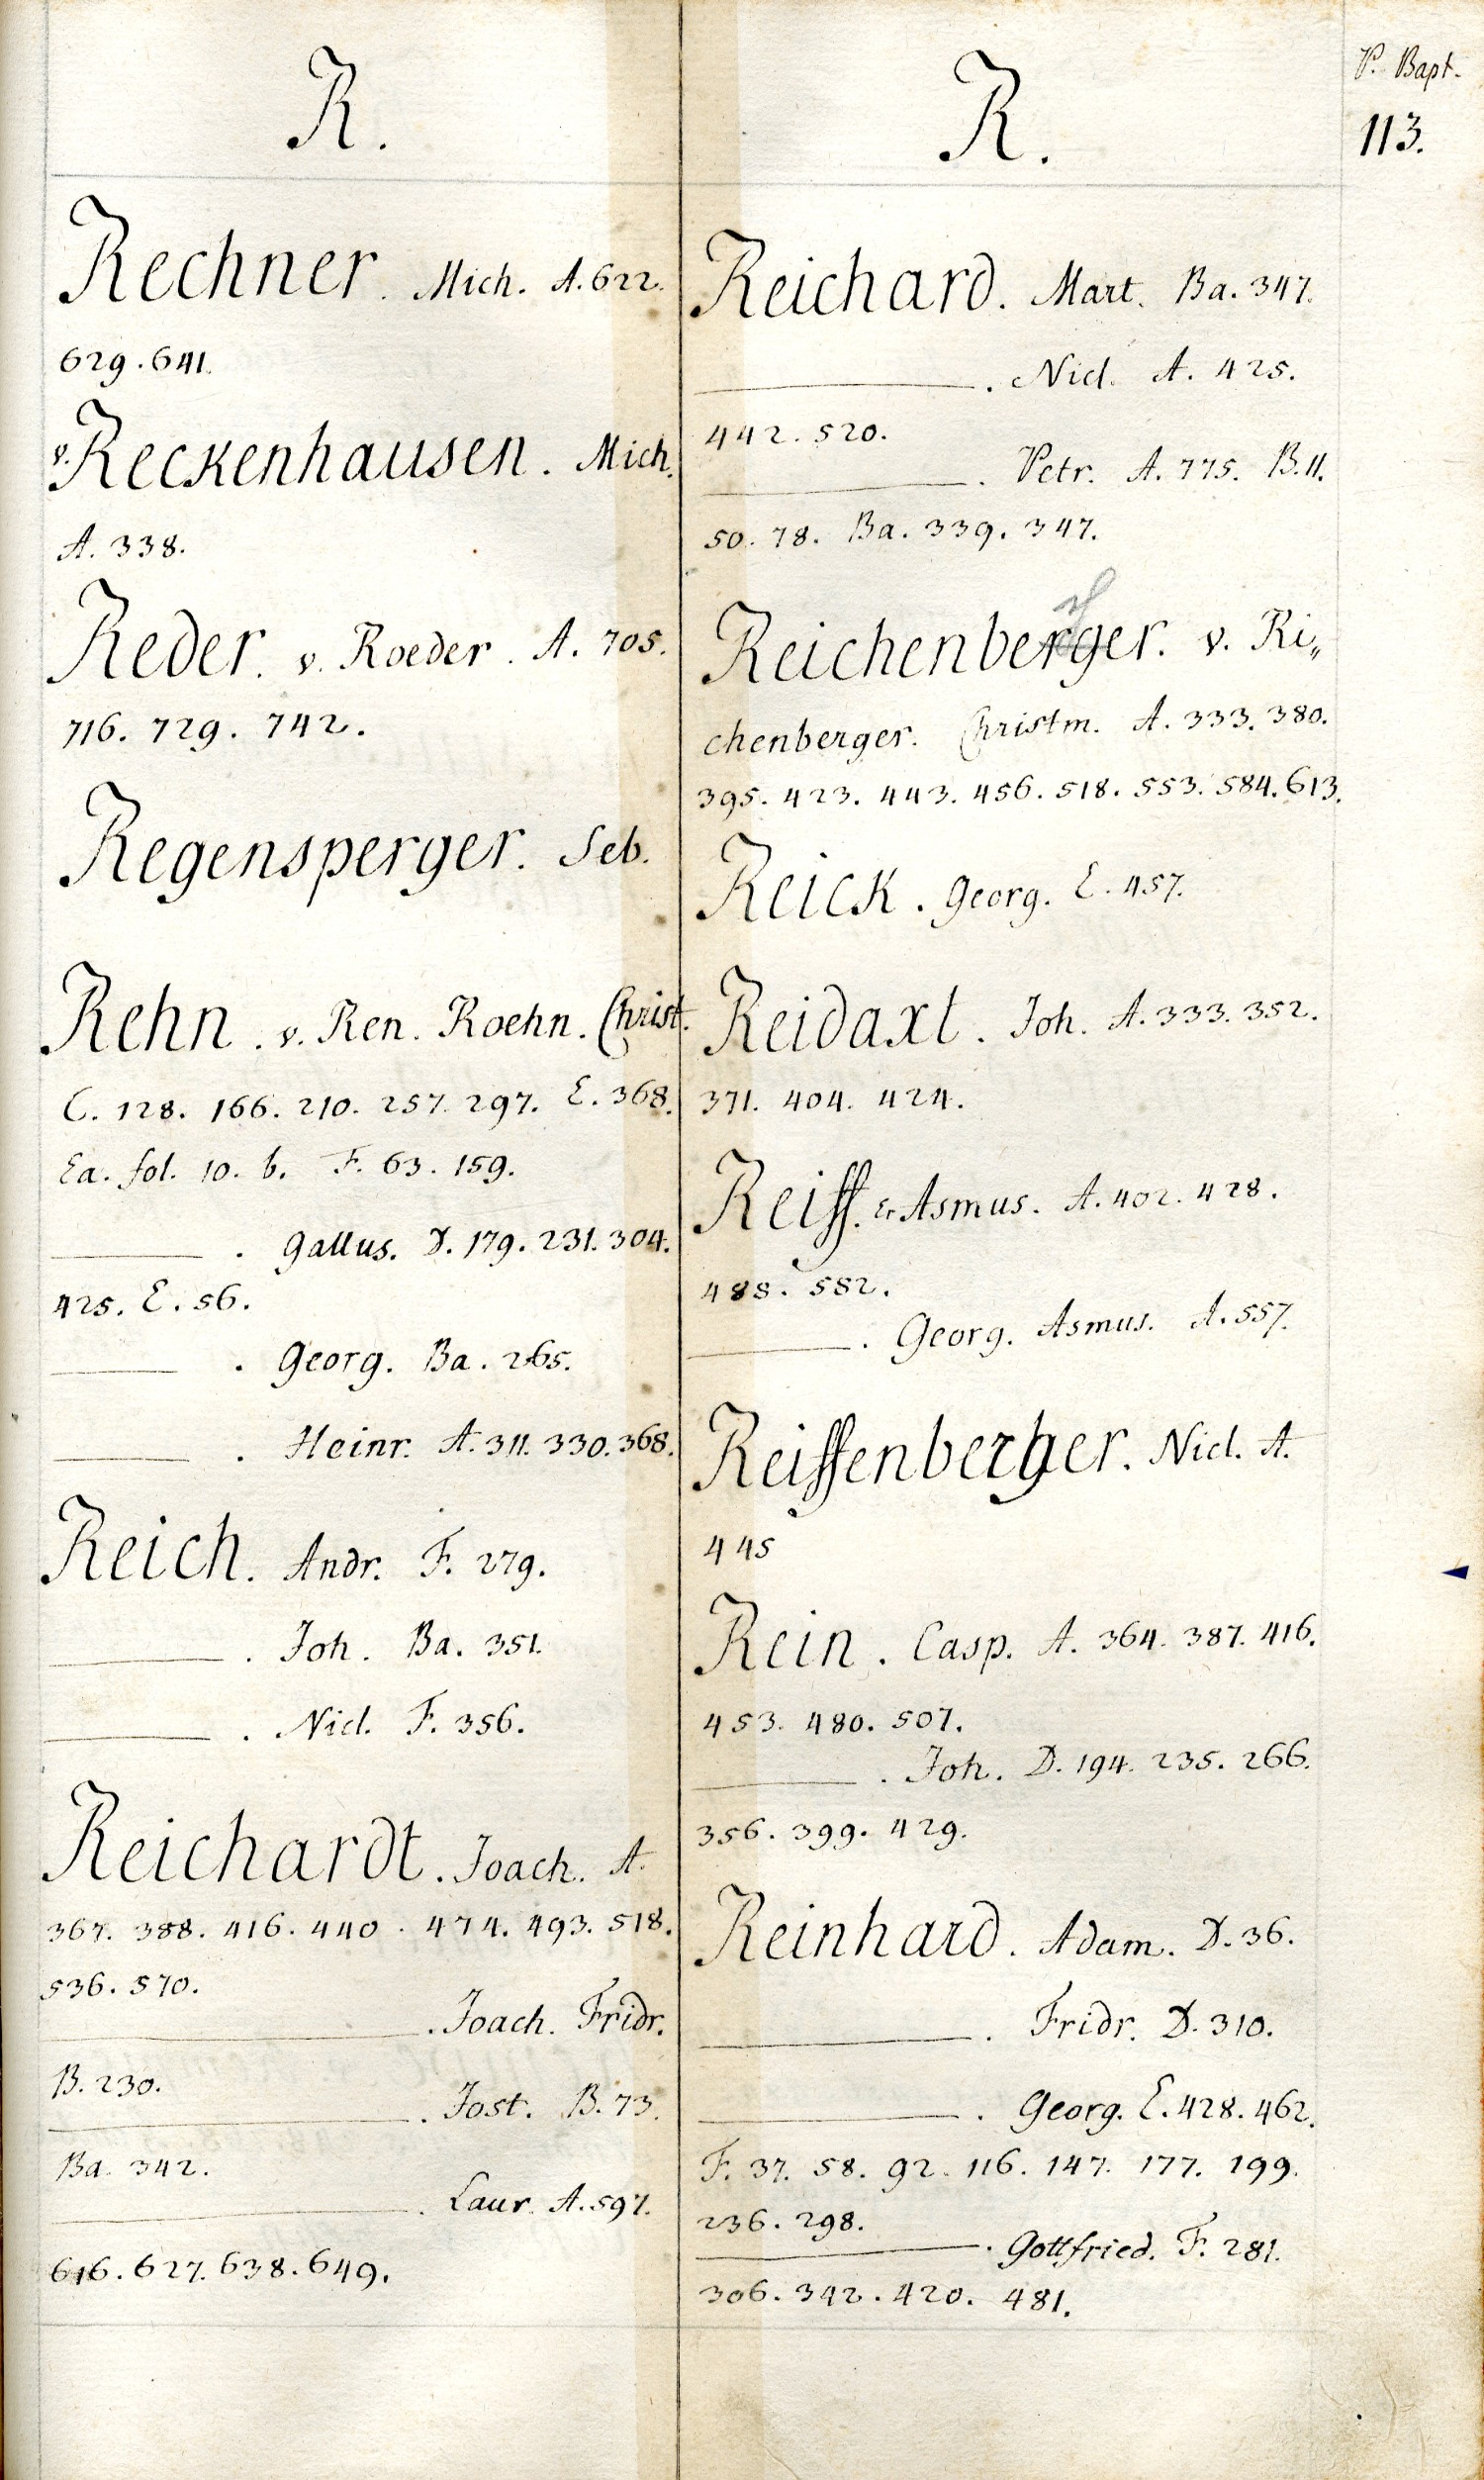 P. Bapt.
113.
R.
Rechner. Mich. A. 622.
629. 641.
v. Reckenhausen. Mich.
A. 338.
Reder. v. Roeder. A. 705.
716. 729. 742.
Regensperger. Seb.
Rehn. v. Ren. Roehn. Christ.
C. 128. 166. 210. 257. 297. E. 368.
Ea. fol. 10. b. F. 63. 159.
———. Gallus. D. 179. 231. 304.
425. E. 56.
———. Georg. Ba. 265.
———. Heinr. A. 311. 330. 368.
Reich. Andr. F. 279.
———. Joh. Ba. 351.
———. Nicl. F. 356.
Reichardt. Joach. A.
367. 388. 416. 440. 474. 493. 518.
536. 570.
———. Joach. Fridr.
B. 230.
———. Jost. B. 73.
Ba. 342.
———. Laur. A. 597.
616. 627. 638. 649.
R.
Reichard. Mart. Ba. 347.
———. Nicl. A. 425.
442. 520.
———. Petr. A. 775. B. 11.
50. 78. Ba. 339. 347.
Reichenberger. v. Ri„
chenberger. Christm. A. 333. 380.
395. 423. 443. 456. 518. 553. 584. 613.
Reick. Georg. E. 457.
Reidaxt. Joh. A. 333. 352.
371. 404. 424.
Reiff. Er Asmus. A. 402. 428.
488. 552.
———. Georg. Asmus. A. 557.
Reiffenberger. Nicl. A.
445
Rein. Casp. A. 364. 387. 416.
453. 480. 507.
———. Joh. D. 194. 235. 266.
356. 399. 429.
Reinhard. Adam. D. 36.
———. Fridr. D. 310.
———. Georg. E. 428. 462.
F. 37. 58. 92. 116. 147. 177. 199.
236. 298.
———. Gottfried. F. 281.
306. 342. 420. 481.